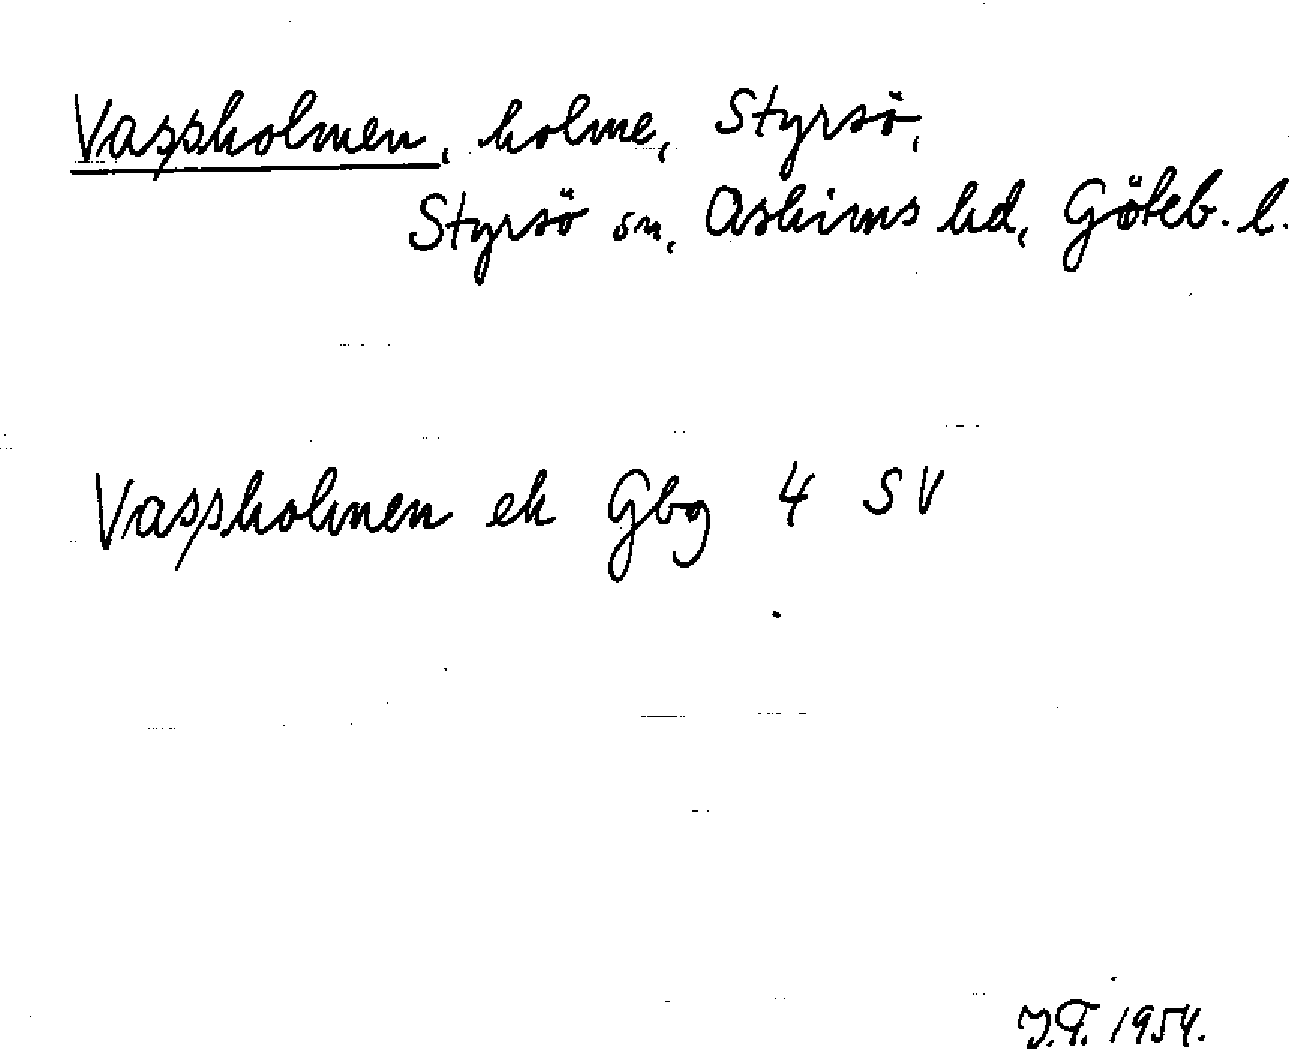 Vaspholmen, holme, Styrsö,
Styrsö sn, Askims hd, Göteb. l.
Vaspholmen ek Gbg 4 SV
1954.